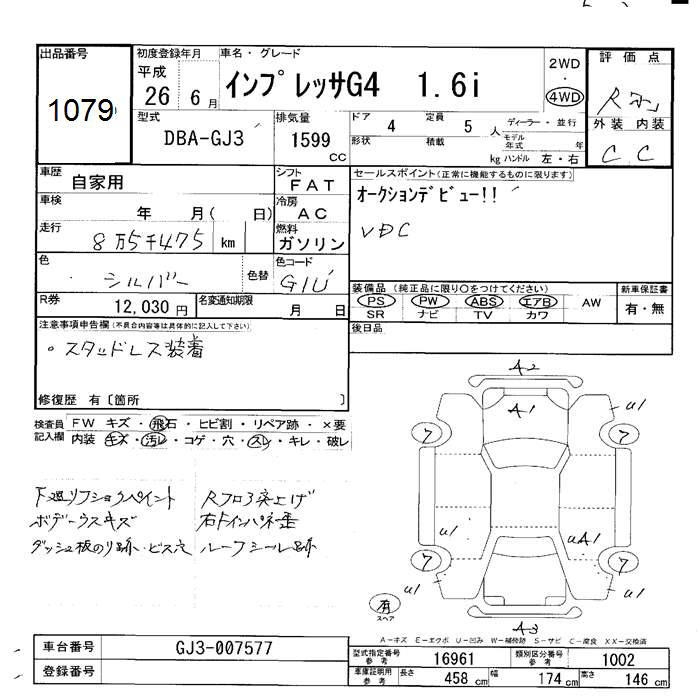 出品番号
1079
初度登録年月
平成
26 6 月
車名・グレード
インプレッサG4 1.6i
2WD
・
4WD
評価点
外装 内装
C C
型式
DBA-GJ3
排気量
1599
cc
ドア
4
定員
5
人
ディーラー・並行
形状
積載
kg
モデル年式
年
ハンドル 左・右
車歴
自家用
シフト
FAT
セールスポイント(正常に機能するものに限ります)
オークションデビュー!!
VDC
車検
年 月( 日)
冷房
AC
走行
8万5千475 km
燃料
ガソリン
色
シルバー
色替
色コード
G1U
装備品 (純正品に限り○をつけてください)
新車保証書
PS PW ABS エアB AW
有・無
SR ナビ TV カワ
R券
12,030 円
名変通知期限
月 日
後日品
注意事項申告欄(不具合内容等は具体的に記入して下さい)
。スタッドレス装着
修復歴 有〔箇所 〕
検査員記入欄
FW キズ・飛石・ヒビ割・リペア跡・×要
内装 キズ・汚レ・コゲ・穴・スレ・キレ・破レ
下廻リフショクペイント
ボデーウスキズ
ダッシュ板のり跡・ビス穴
ルーフシール跡
A2
A1
u1
7
7
u1
uA1
7
7
u1
u1
有
スペア
A3
A-キズ E-エクボ U-凹み W-補修跡 S-サビ C-腐食 XX-交換済
車台番号
GJ3-007577
登録番号
型式指定番号
参考
16961
類別区分番号
参考
1002
車庫証明用
参考
長さ
458 cm
幅
174 cm
高さ
146 cm